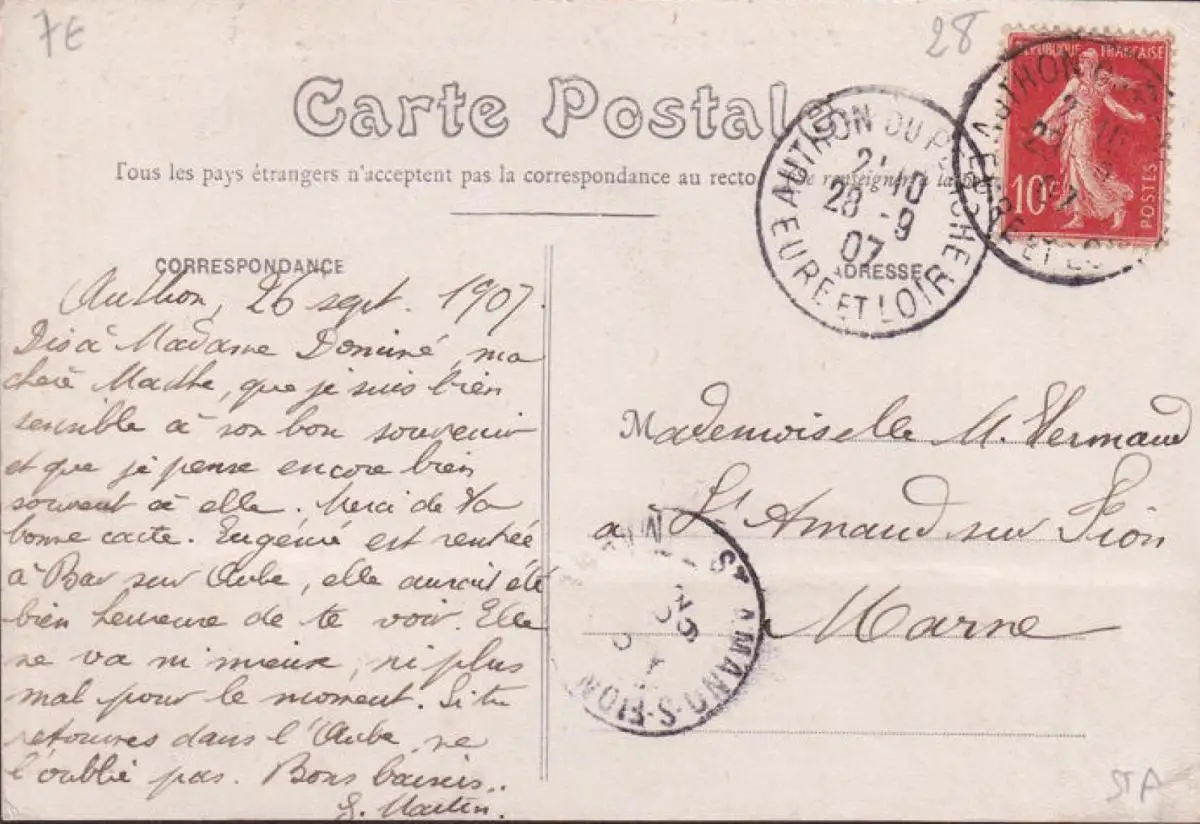 7E
28
RÉPUBLIQUE FRANÇAISE
10c
POSTES
Carte Postale
Tous les pays étrangers n'acceptent pas la correspondance au recto Se renseigner à la
AUTHON DU PERCHE
21 10
28 - 9
07
EURE ET LOIR
CORRESPONDANCE
ADRESSE
Authon, 26 sept. 1907.
Dis à Madame Dominé, ma
chère Marthe, que je suis bien
sensible à son bon souvenir
et que je pense encore bien
souvent à elle. Merci de ta
bonne carte. Eugénie est rentrée
à Bar sur Aube, elle aurait été
bien heureuse de te voir. Elle
ne va ni mieux, ni plus
mal pour le moment. Si tu
retournes dans l'Aube, ne
l'oublie pas. Bons baisers..
Martin.
Mademoiselle M. Vermaud
à St Amand sur Fion
Marne
ST AMAND-S-FION
STA